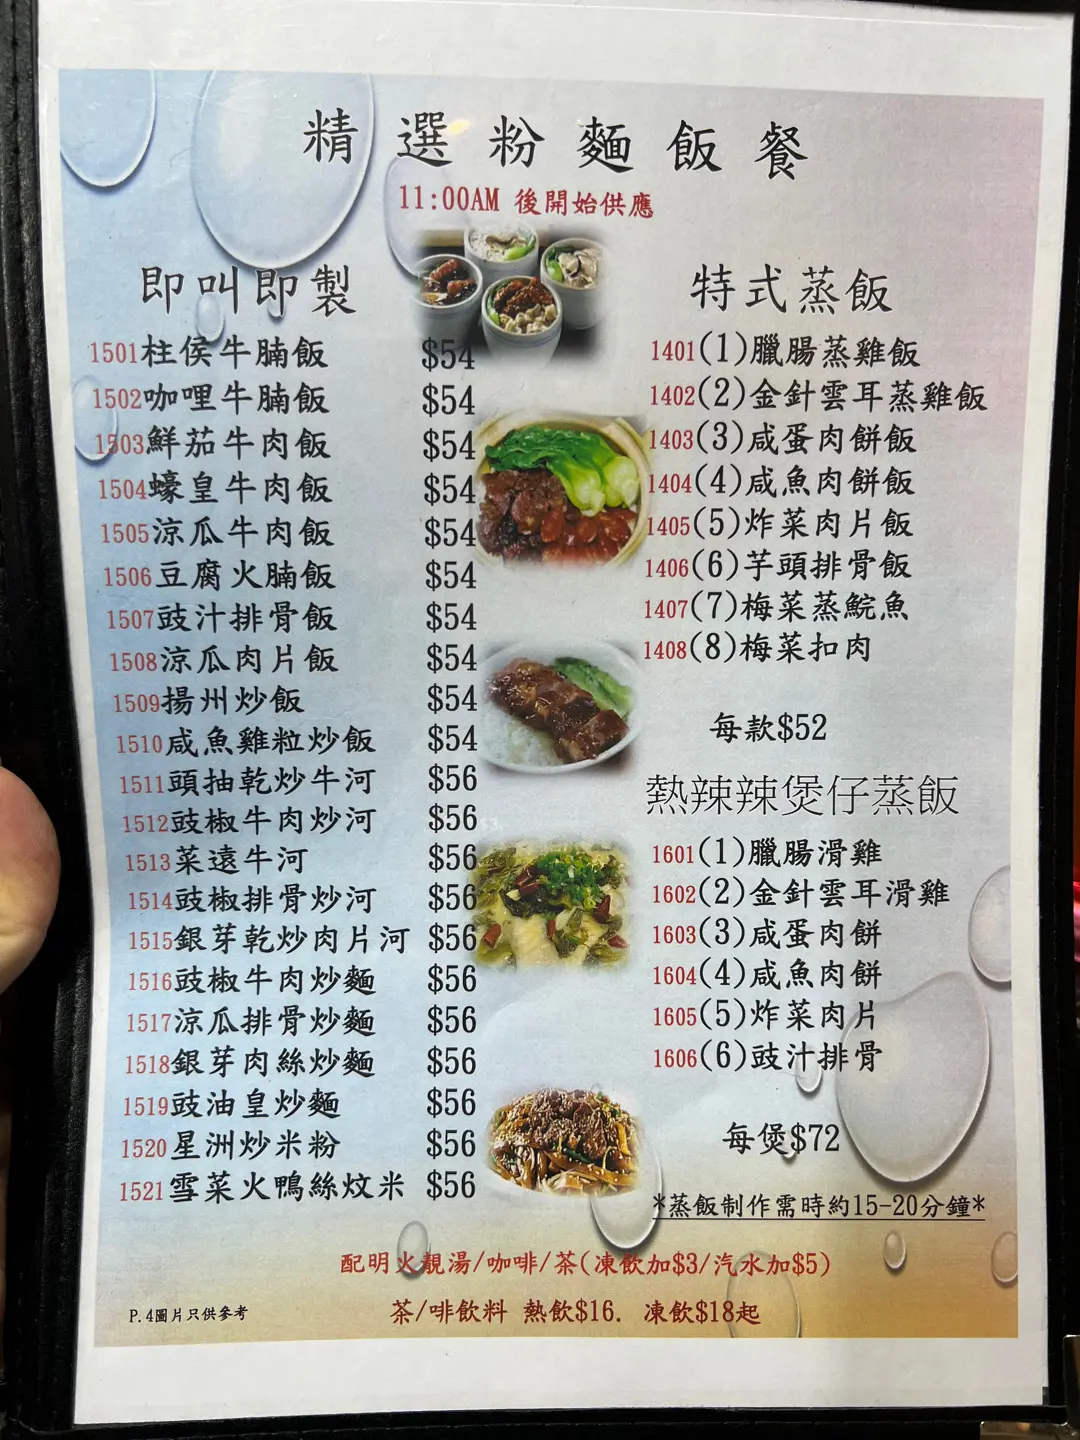 精選粉麵飯餐
11:00AM 後開始供應
即叫即製
1501柱侯牛腩飯 $54
1502咖哩牛腩飯 $54
1503鮮茄牛肉飯 $54
1504蠔皇牛肉飯 $54
1505涼瓜牛肉飯 $54
1506豆腐火腩飯 $54
1507豉汁排骨飯 $54
1508涼瓜肉片飯 $54
1509揚州炒飯 $54
1510咸魚雞粒炒飯 $54
1511頭抽乾炒牛河 $56
1512豉椒牛肉炒河 $56
1513菜遠牛河 $56
1514豉椒排骨炒河 $56
1515銀芽乾炒肉片河 $56
1516豉椒牛肉炒麵 $56
1517涼瓜排骨炒麵 $56
1518銀芽肉絲炒麵 $56
1519豉油皇炒麵 $56
1520星洲炒米粉 $56
1521雪菜火鴨絲炆米 $56
特式蒸飯
1401(1)臘腸蒸雞飯
1402(2)金針雲耳蒸雞飯
1403(3)咸蛋肉餅飯
1404(4)咸魚肉餅飯
1405(5)炸菜肉片飯
1406(6)芋頭排骨飯
1407(7)梅菜蒸鯇魚
1408(8)梅菜扣肉
每款$52
熱辣辣煲仔蒸飯
1601(1)臘腸滑雞
1602(2)金針雲耳滑雞
1603(3)咸蛋肉餅
1604(4)咸魚肉餅
1605(5)炸菜肉片
1606(6)豉汁排骨
每煲$72
*蒸飯制作需時約15-20分鐘*
配明火靚湯/咖啡/茶(凍飲加$3/汽水加$5)
P.4圖片只供參考
茶/啡飲料 熱飲$16. 凍飲$18起